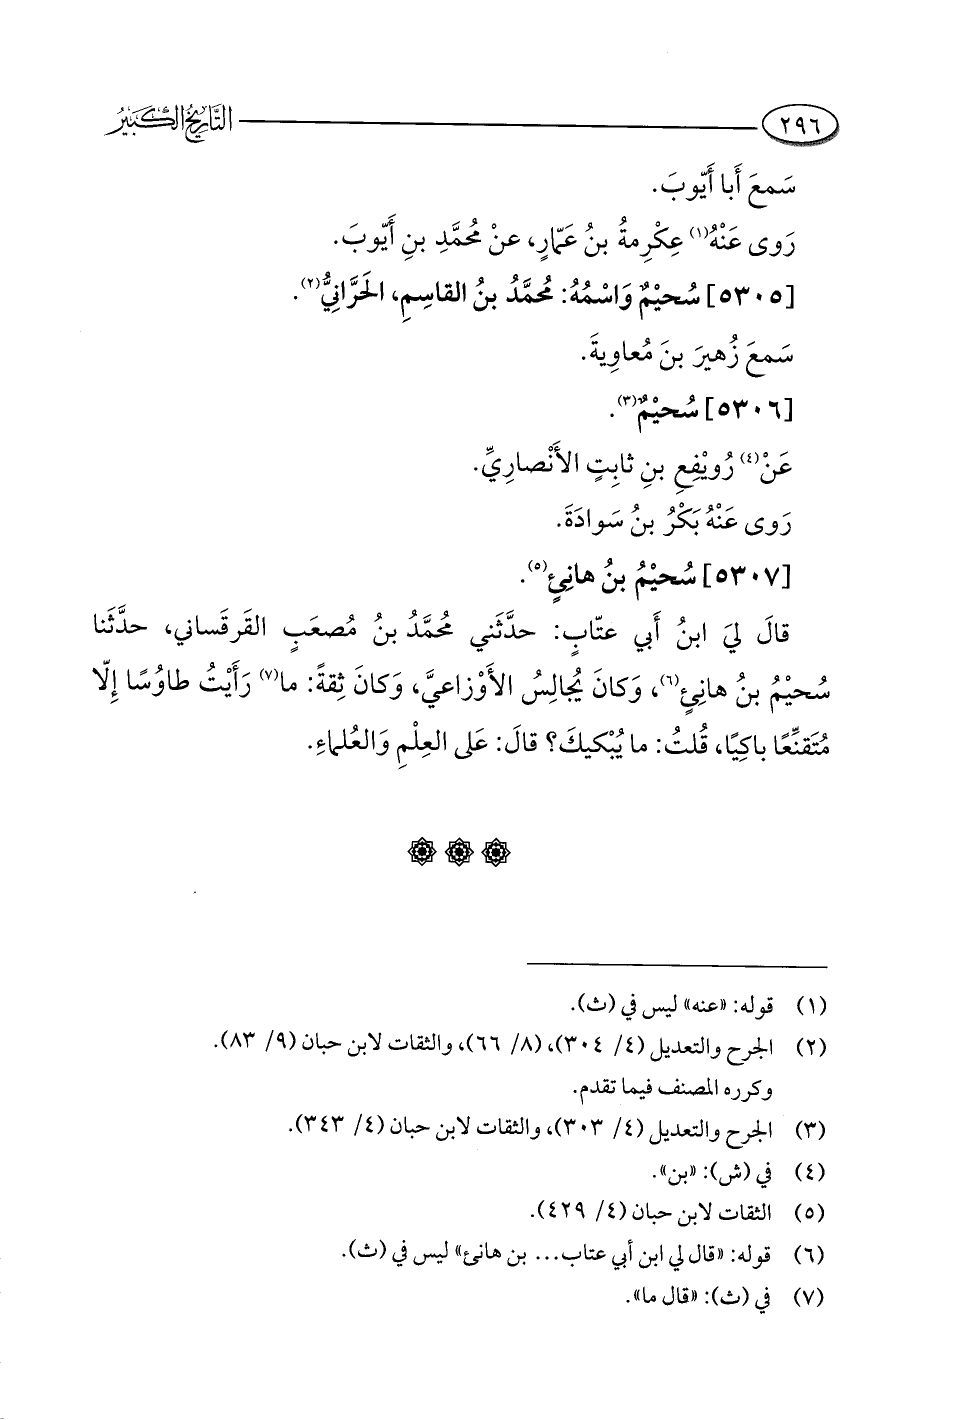 ٢٩٦ التَّارِيخُ الكَبِيرُ
سَمعَ أَبا أَيّوبَ.
رَوى عَنْهُ(١) عِكْرِمةُ بنُ عَمّارٍ، عنْ مُحمَّدِ بنِ أَيّوبَ.
[٥٣٠٥] سُحيْمٌ وَاسْمُهُ: مُحمَّدُ بنُ القاسِمِ، الحَرَّانِيُّ(٢).
سَمعَ زُهيرَ بنَ مُعاوِيةَ.
[٥٣٠٦] سُحيْمٌ(٣).
عَنْ(٤) رُويْفِعِ بنِ ثابِتٍ الأَنْصارِيِّ.
رَوى عَنْهُ بَكْرُ بنُ سَوادَةَ.
[٥٣٠٧] سُحيْمُ بنُ هانِئٍ(٥).
قالَ لِيَ ابنُ أَبي عتّاب: حدَّثَني مُحمَّدُ بنُ مُصعَبٍ القَرقَساني، حدَّثَنا
سُحيْمُ بنُ هانِئٍ(٦)، وَكانَ يُجالِسُ الأَوْزاعيَّ، وَكانَ ثِقةً: ما(٧) رَأَيْتُ طاوُسًا إِلّا
مُتَقنِّعًا باكِيًا، قُلتُ: ما يُبْكيكَ؟ قالَ: عَلى العِلْمِ وَالعُلماءِ.
(١) قوله: «عنه» ليس في (ث).
(٢) الجرح والتعديل (٤/ ٣٠٤)، (٨/ ٦٦)، والثقات لابن حبان (٩/ ٨٣).
وكرره المصنف فيما تقدم.
(٣) الجرح والتعديل (٤/ ٣٠٣)، والثقات لابن حبان (٤/ ٣٤٣).
(٤) في (ش): «بن».
(٥) الثقات لابن حبان (٤/ ٤٢٩).
(٦) قوله: «قال لي ابن أبي عتاب... بن هانئ» ليس في (ث).
(٧) في (ث): «قال ما».